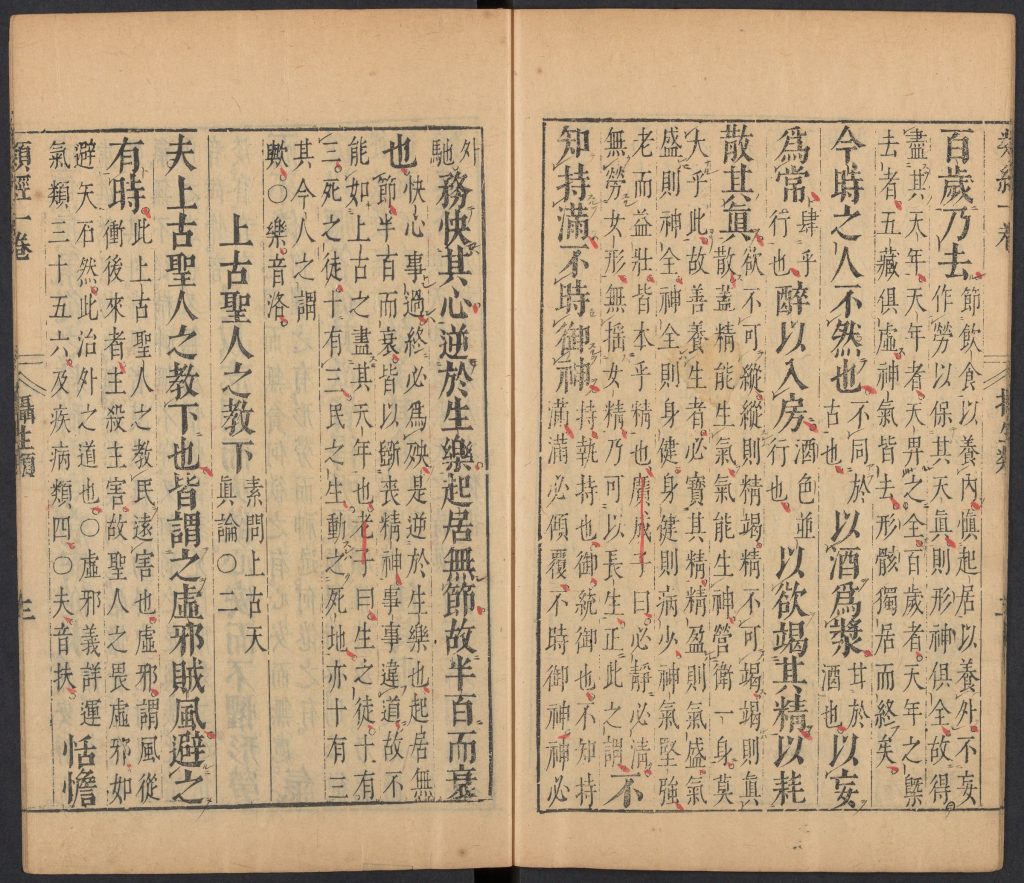 百歲乃去節飲食以養內慎起居以養外不妄
作勞以保其天眞則形神俱全故得
盡其天年天年者天畀之全百歲者天年之槩
去者五藏俱虛神氣皆去形骸獨居而終矣
今時之人不然也不同於古也以酒爲漿甘於酒也以妄
爲常肆乎行也醉以入房酒色並行也以欲竭其精以耗
散其眞欲不可縱縱則精竭精不可竭竭則眞
散蓋精能生氣氣能生神營衛一身莫
大乎此故善養生者必寶其精精盈則氣盛氣
盛則神全神全則身健身健則病少神氣堅強
老而益壯皆本乎精也廣成子曰必靜必清
無勞女形無搖女精乃可以長生正此之謂不
知持滿不時御神持執持也御統御也不知持
滿滿必傾覆不時御神神必
外馳務快其心逆於生樂起居無節故半百而衰
也快心事過終必爲殃是逆於生樂也起居無
節半百而衰皆以斲喪精神事事違道故不
能如上古之盡其天年也老子曰生之徒十有
三死之徒十有三民之生動之死地亦十有三
其今人之謂
歟○樂音洛
上古聖人之教下素問上古天眞論○二
夫上古聖人之教下也皆謂之虛邪賊風避之
有時此上古聖人之教民遠害也虛邪謂風從
衝後來者主殺主害故聖人之畏虛邪如
避矢石然此治外之道也○虛邪義詳運
氣類三十五六及疾病類四○夫音扶恬憺
類經一卷 攝生類 三